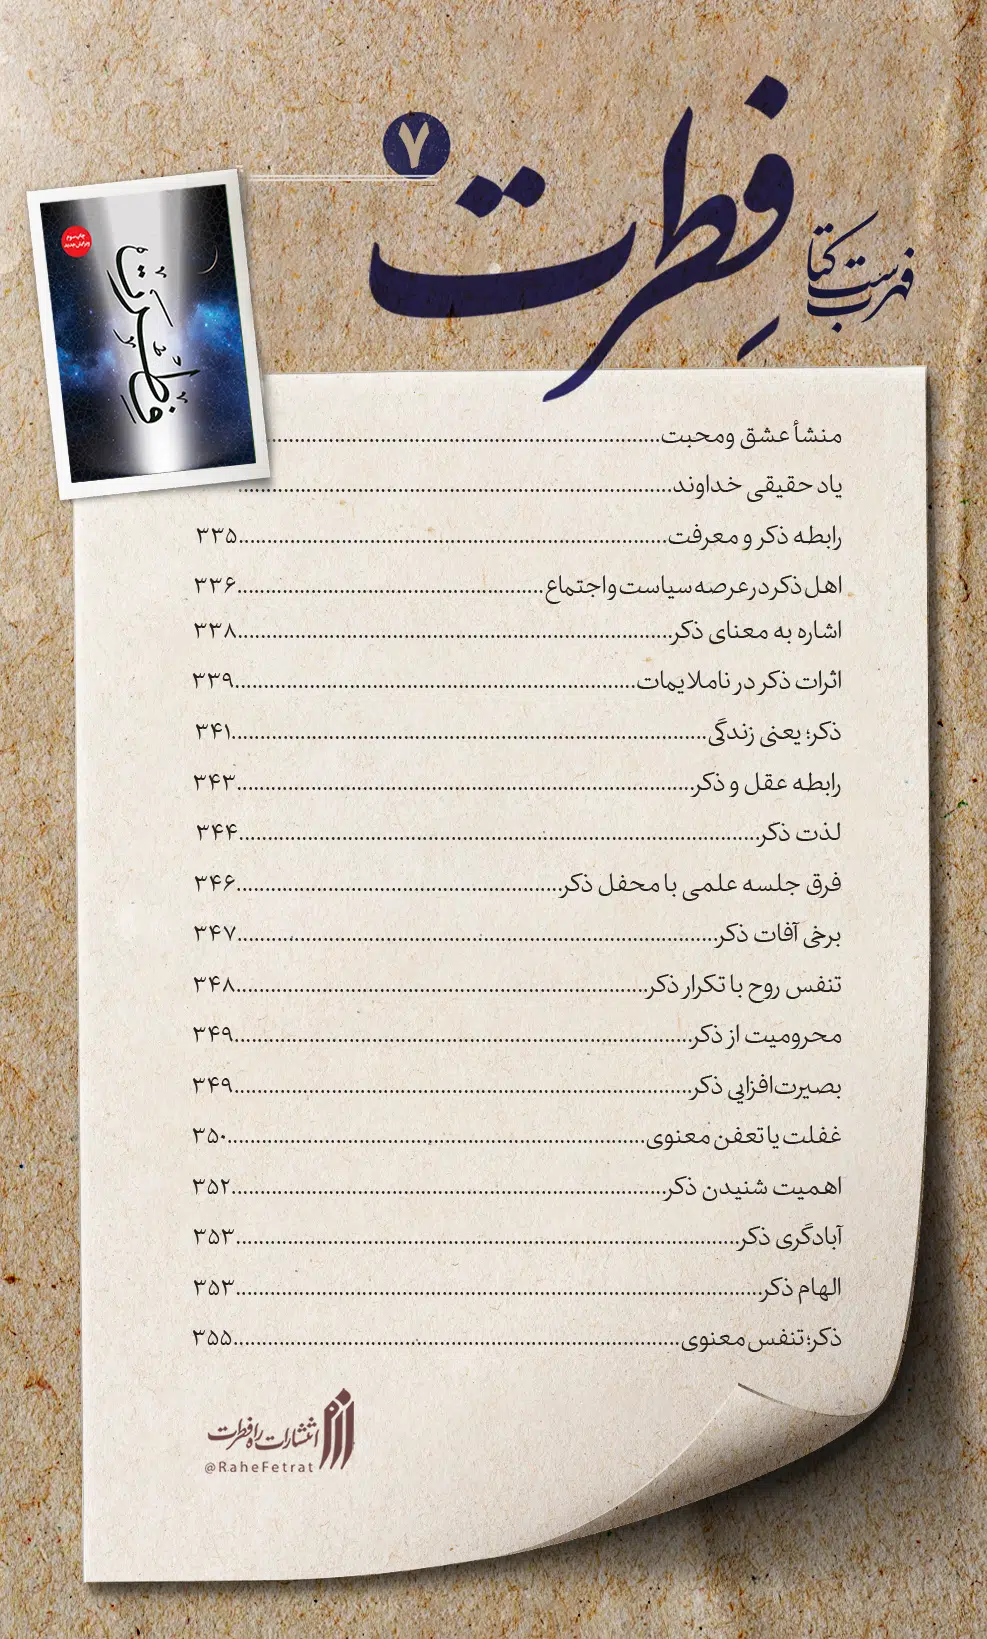 فهرست کتاب
فطرت
۷
چاپ سوم
ویرایش جدید
فطرت
منشأ عشق ومحبت......................................................................
یاد حقیقی خداوند............................................................................
رابطه ذکر و معرفت............................................................................۳۳۵
اهل ذکر در عرصه سیاست و اجتماع.....................................................۳۳۶
اشاره به معنای ذکر............................................................................۳۳۸
اثرات ذکر در ناملایمات......................................................................۳۳۹
ذکر؛ یعنی زندگی...................................................................................۳۴۱
رابطه عقل و ذکر................................................................................۳۴۳
لذت ذکر............................................................................................۳۴۴
فرق جلسه علمی با محفل ذکر.........................................................۳۴۶
برخی آفات ذکر....................................................................................۳۴۷
تنفس روح با تکرار ذکر........................................................................۳۴۸
محرومیت از ذکر................................................................................۳۴۹
بصیرت‌افزایی ذکر................................................................................۳۴۹
غفلت یا تعفن معنوی.........................................................................۳۵۰
اهمیت شنیدن ذکر............................................................................۳۵۲
آبادگری ذکر........................................................................................۳۵۳
الهام ذکر............................................................................................۳۵۳
ذکر؛ تنفس معنوی..............................................................................۳۵۵
انتشارات راه فطرت
@RaheFetrat